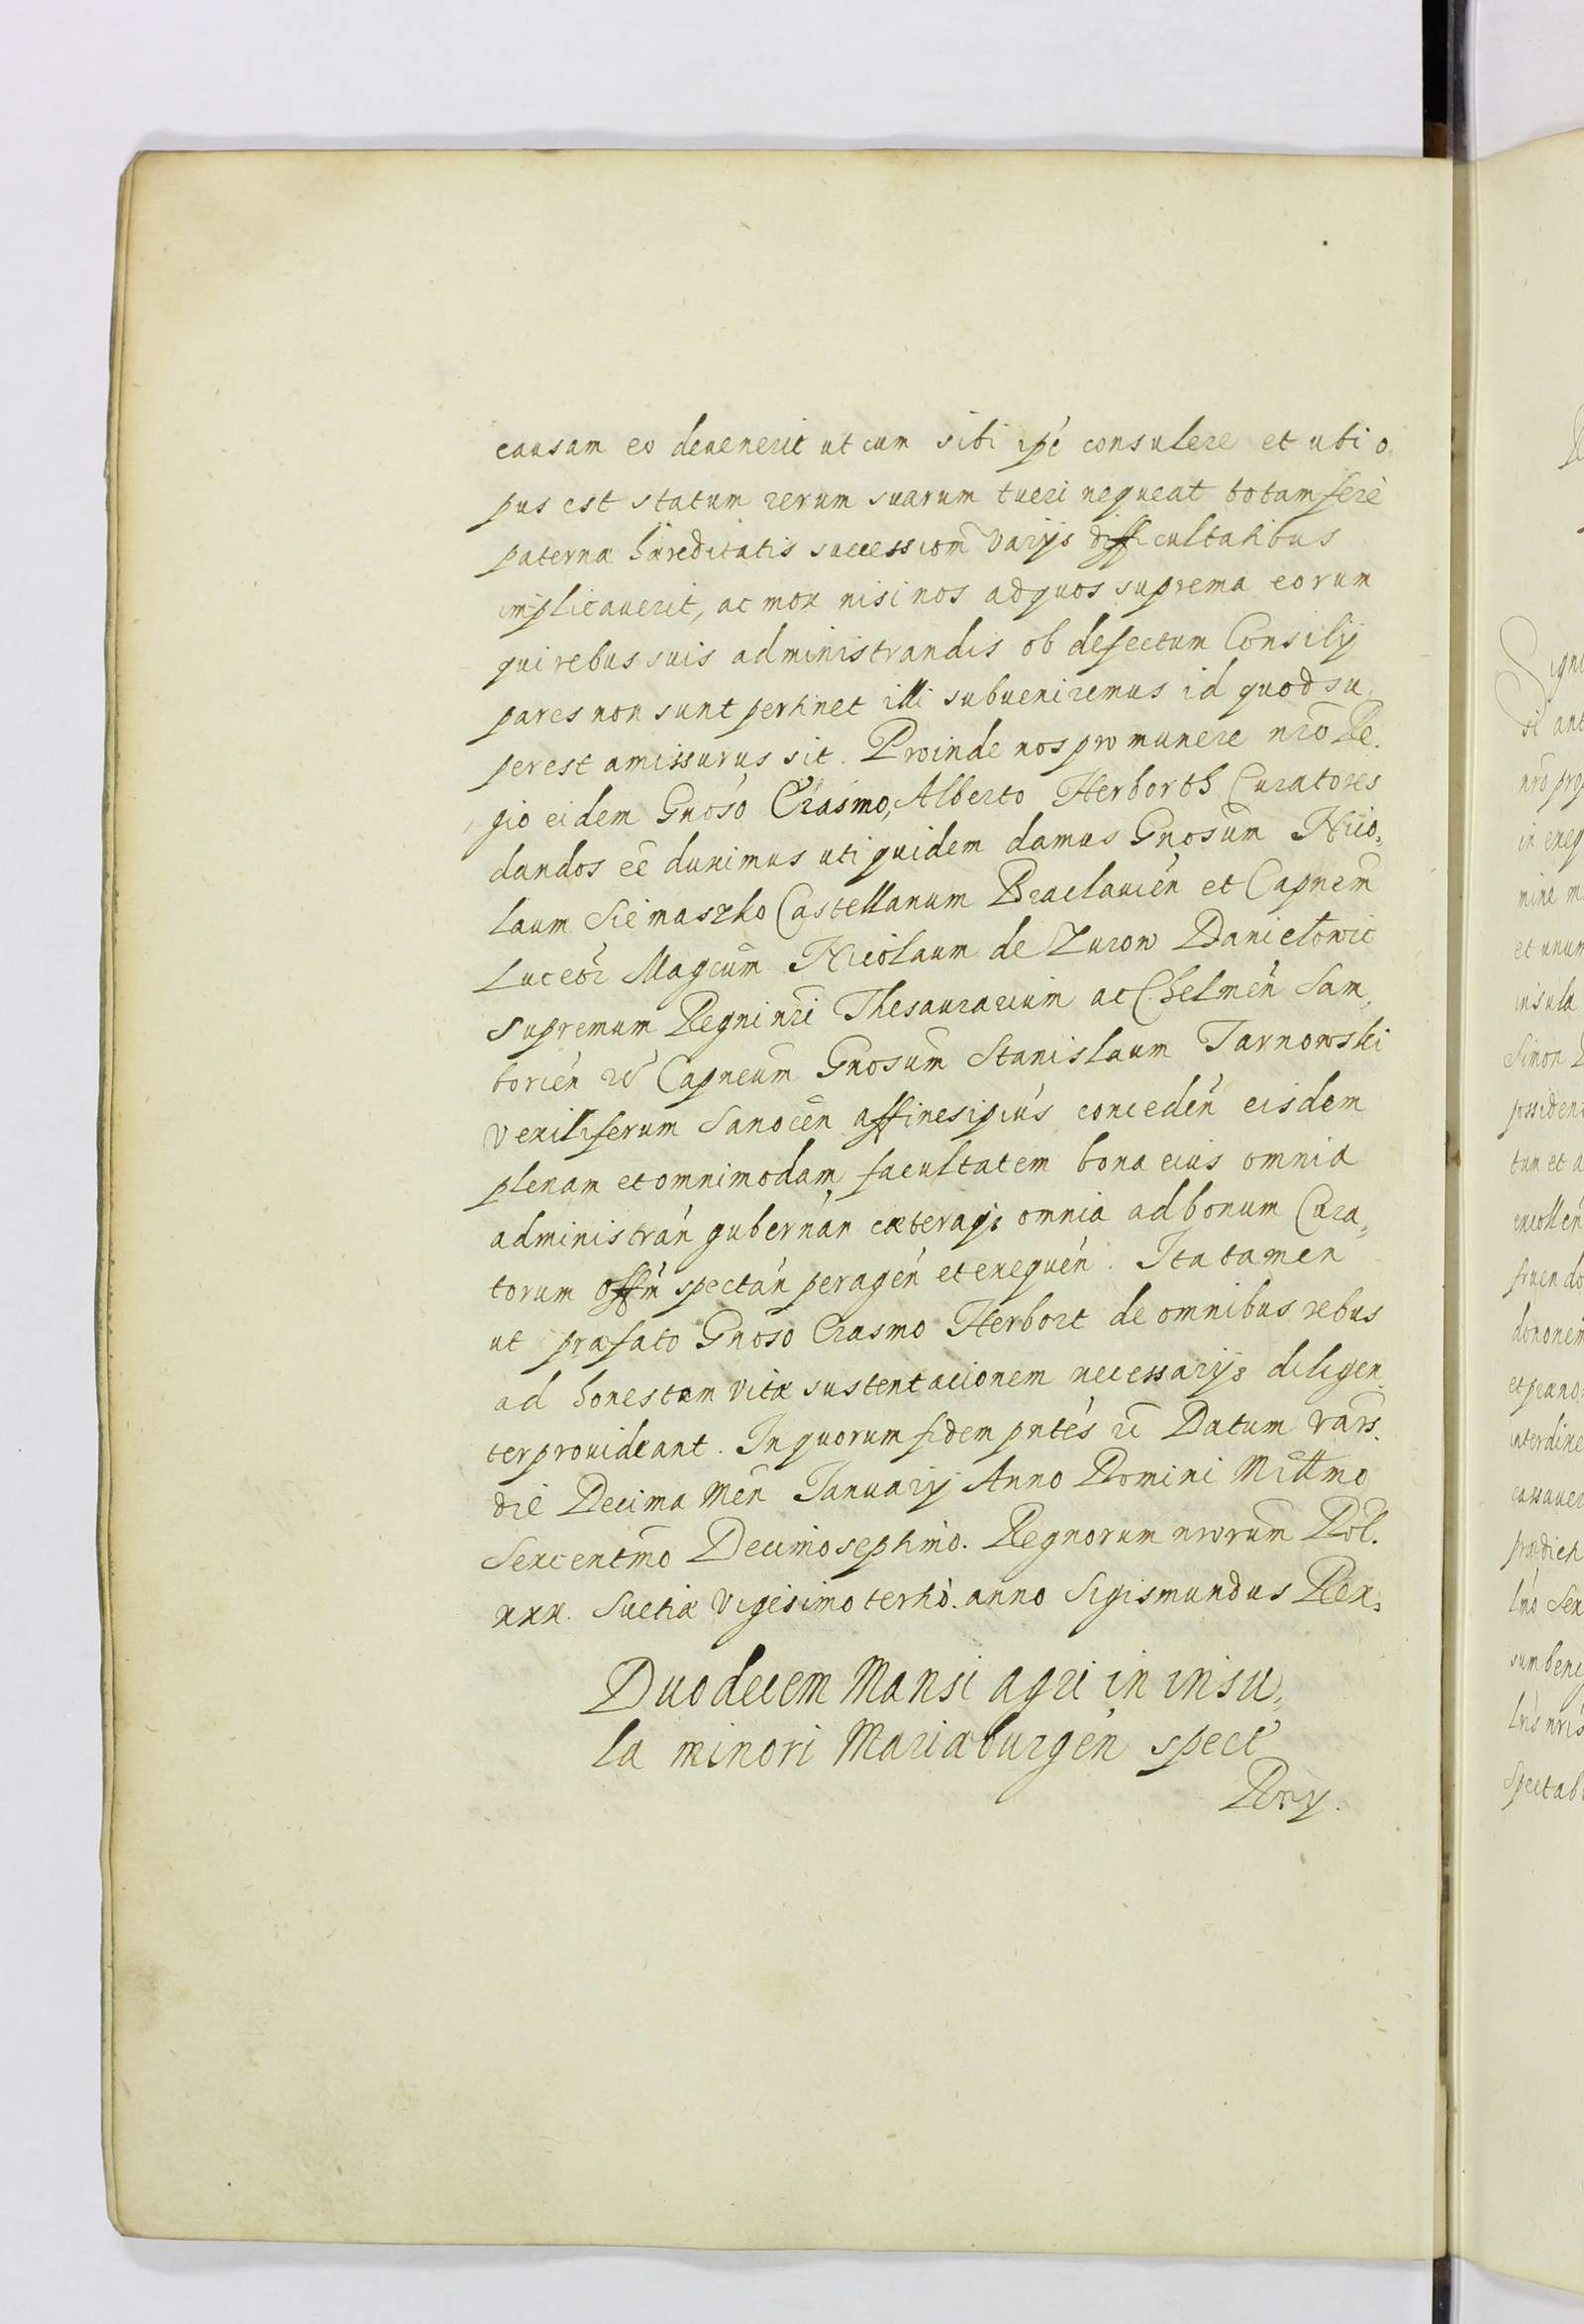 causam eo deuenerit ut cum sibi ipē consulere et ubi o,
pus est statum rerum suarum tueri nequeat totam ferè
paternæ hæreditatis successiom̃ varijs difficultatibus
implicauerit, ac mox nisi nos ad quos suprema eorum
qui rebus suis administrandis ob defectum Consilij
pares non sunt pertinet illi subueniremus id quod su,
perest amissurus sit. Proinde nos pro munere nr̃o Re,
gio eidem Gnoso Erasmo, Alberto Herborth Curatores
dandos eē duximus uti quidem damus Gnosum Nico,
laum Siemaszko Castellanum Braclauien̄ et Capnem̃
Luceor̃ Magcum Nicolaum de Zurow Daniełowic
supremum Regni nr̃i Thesaurarium ac Chelmen̄ Sam,
borien̄ Capneum̃ Gnosum Stanislaum Tarnowski
vexiliferum Sanocen̄ affines ipius conceden̄ eisdem
plenam et omnimodam facultatem bona eius omnia
administran̄ gubernan̄ cæteraqȝ omnia ad bonum Cura,
torum Offm̃ spectan̄ peragen̄ et exequen̄. Ita tamen
ut præfato Gnoso Erasmo Herbort de omnibus rebus
ad honestam vitæ sustentacionem necessarijs diligen,
ter prouideant. In quorum fidem pntēs Datum Vars.
die Decima Men̄ Januarij Anno Domini Millmo
Sexcentmo Decimoseptimo. Regnorum nrorum Pol.
xxx. Suetiæ vigesimo tertio. anno Sigismundus Rex.
Duodecem Mansi agri in insu,
la minori Mariæburgen̄ spect